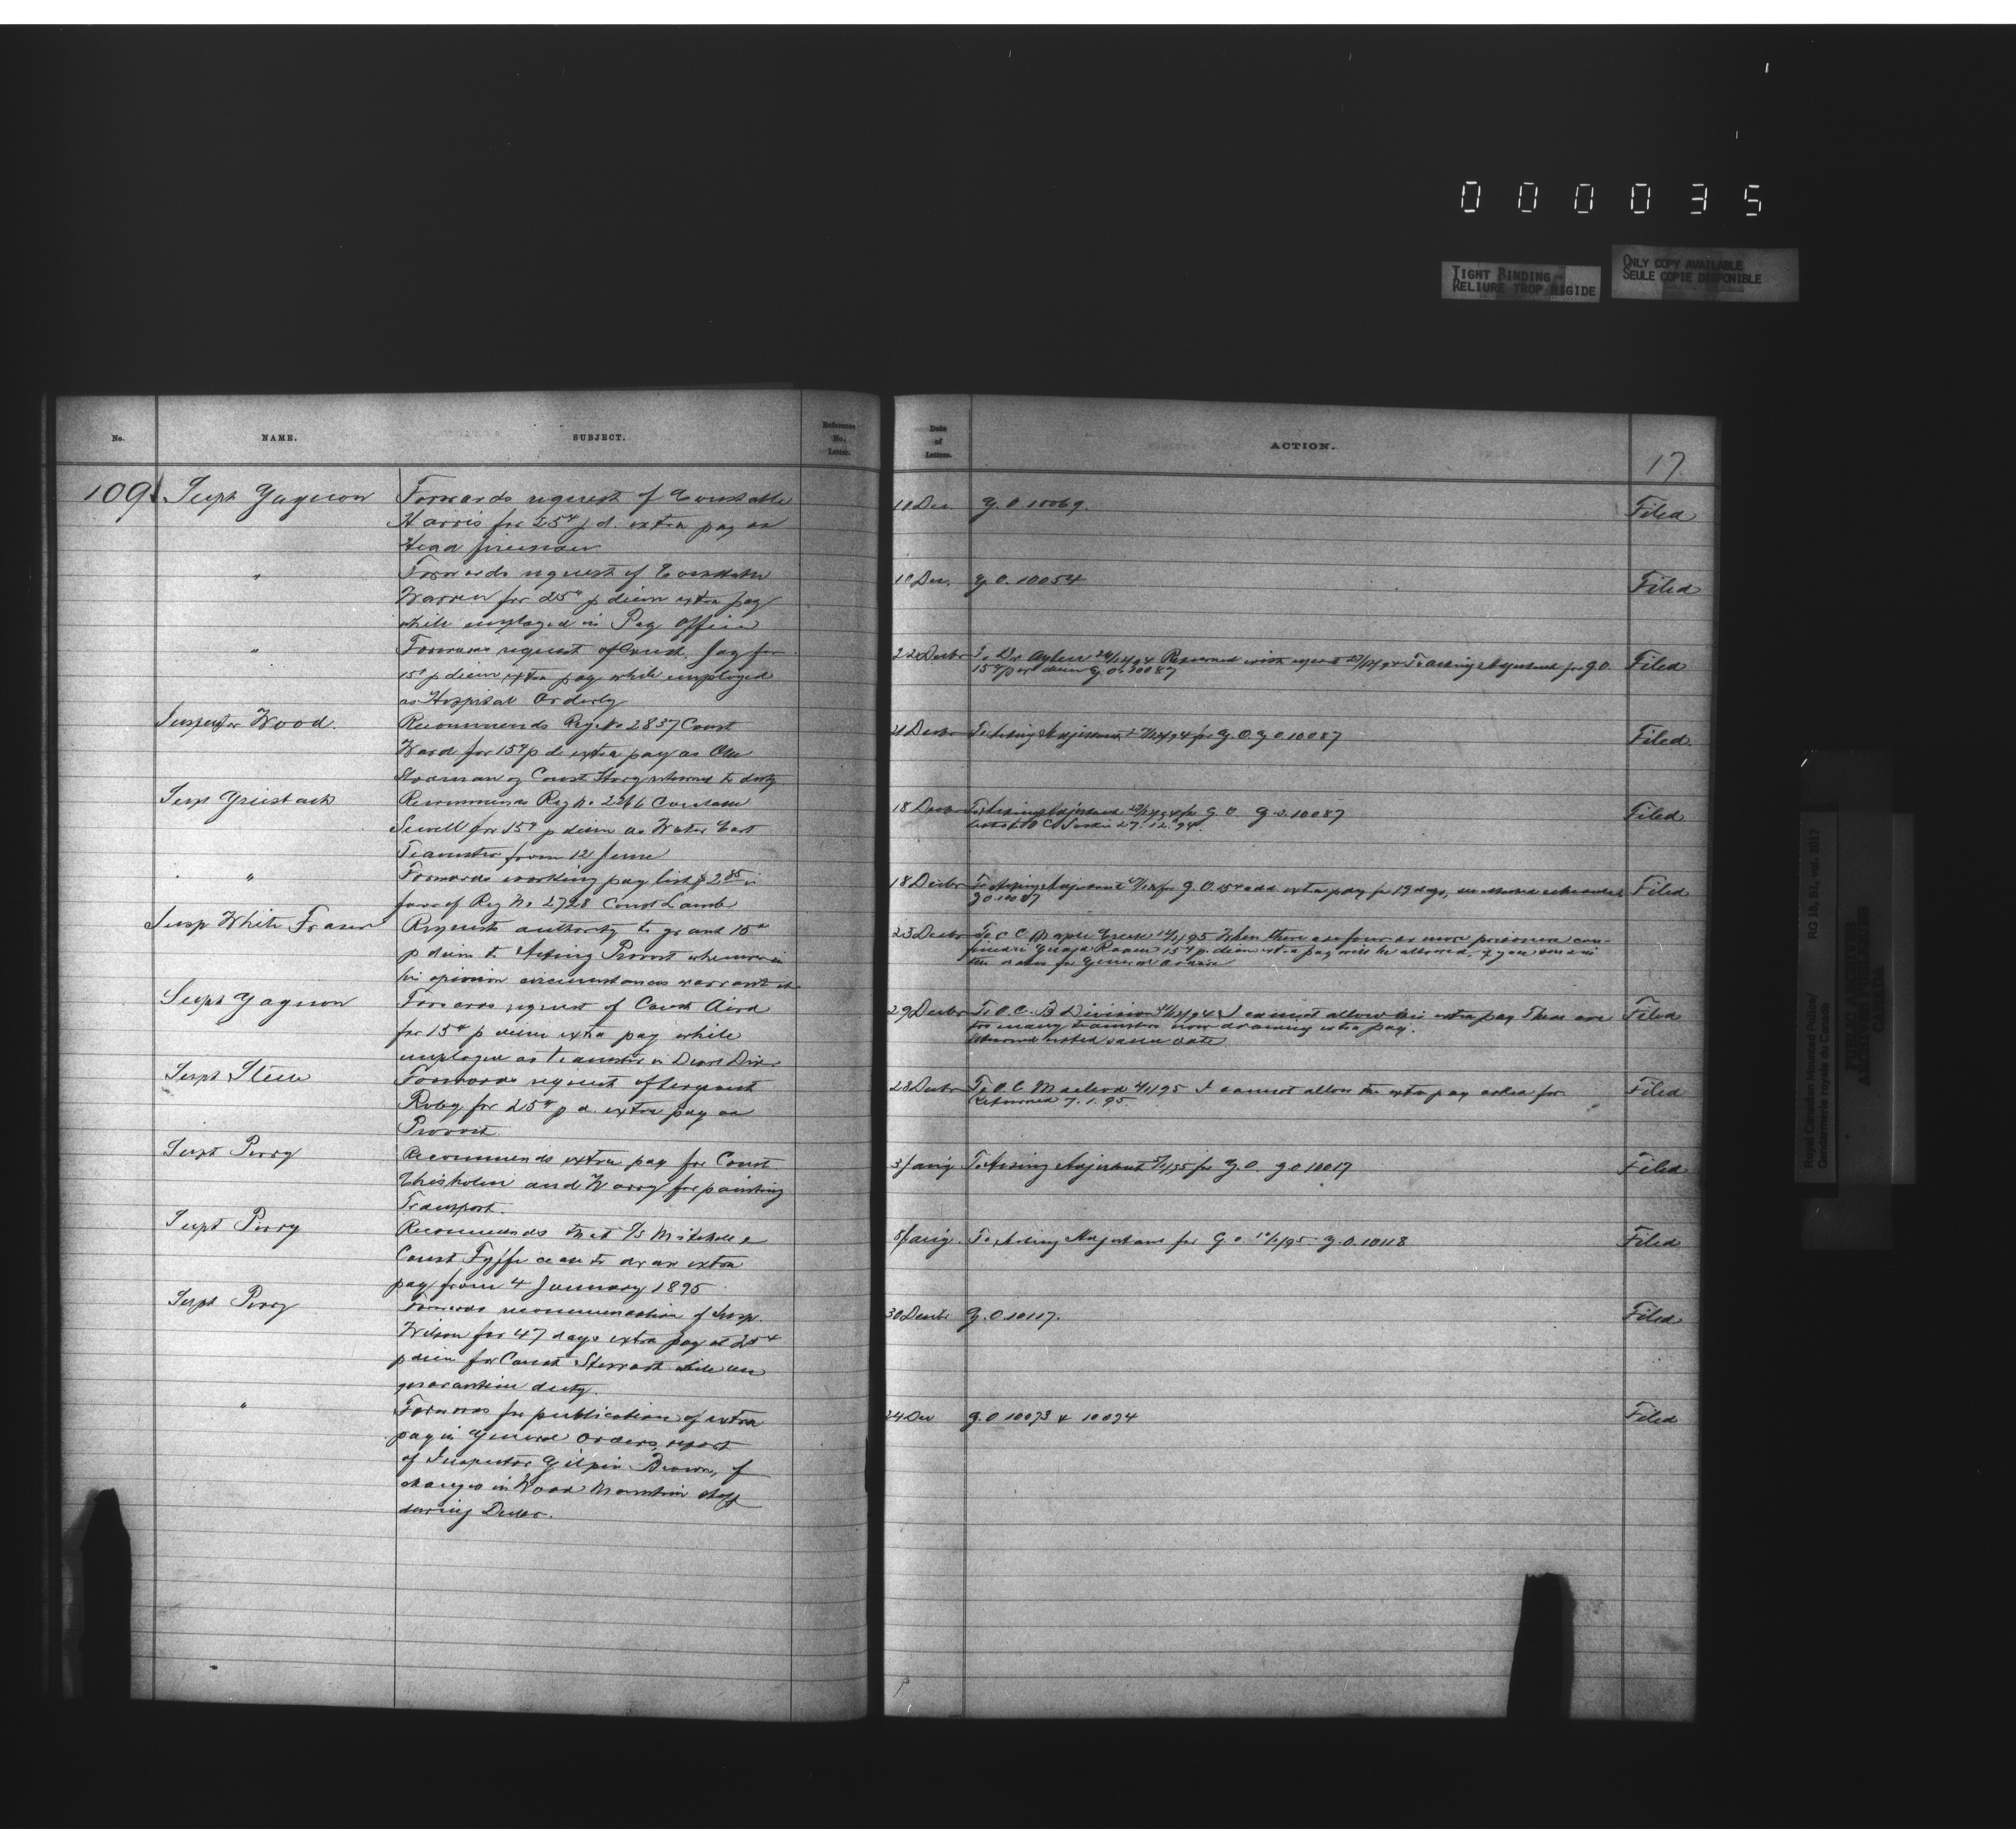 000035
TIGHT BINDING
RELIURE TROP RIGIDE
ONLY COPY AVAILABLE
SEULE COPIE DISPONIBLE
No.
NAME.
SUBJECT.
Reference
No.
Letter.
Date
of
Letters.
ACTION.
17
109
Supt Gagnon
Forwards request of Constable
Harris for 25¢ p d. extra pay as
Head fireman
10 Dec.
G.O 10069.
Filed
"
Forwards request of Constable
Warren for 25¢ p diem extra pay
while employed in Pay Office
10 Dec.
G.O. 10054
Filed
"
Forwards request of Const. Jay for
15¢ p diem extra pay while employed
as Hospital Orderly
22 Decbr
To Dr Aylen Returned with report To Acting Adjutant for G.O.
15¢ per diem G.O. 10087
Filed
Inspector Wood.
Recommends Reg No 2837 Const
Ward for 15¢ p d extra pay as
Const returned to duty
21 Decbr
To Acting Adjutant for G.O. G.O 10087
Filed.
Supt Griesbach
Recommends Reg No Constable
Sewell for 15¢ p diem as Water Cart
Teamster from 12 June
18 Decbr
To Acting Adjutant for G.O G.O. 10087
27.12.94.
Filed
"
Forwards working pay list $2.85 in
favor of Reg No 2728 Const Lamb
18 Decbr
To Acting Adjutant for G.O. 15¢ extra pay for 19 days,
GO 10087
Filed
Insp White Fraser
Requests authority to grant 15¢
p diem to Acting Provost whenever in
his opinion circumstances warrant it
23 Decbr
To O C Maple Creek When there are four or more prisoners con-
fined in Guard Room 15¢ p. diem extra pay will be allowed, if you send in
the dates for General Orders
Filed
Supt Gagnon
Forwards request of Const Aird
for 15¢ p diem extra pay while
employed as teamster in
29 Decbr
To O.C. Division I cannot allow this extra pay There are
too many teamsters now drawing extra pay.
same date
Filed
Supt Steele
Forwards request of Sergeant
Roby for 25¢ p d. extra pay as
Provost
28 Decbr
To O.C. Macleod I cannot allow the extra pay asked for
Returned 7.1.95
Filed
Supt Perry
Recommends extra pay for Const
Chisholm and Warry for painting
Transport.
3 Jany
To Acting Adjutant for G.O. G.O 10017
Filed
Supt Perry
Recommends that Mitchell &
Const Fyffe cease to draw extra
pay from 4 January 1895
8 Jany.
To Acting Adjutant for G.O G.O. 10118
Filed
Supt Perry
Forwards recommendation of Insp.
Wilson for 47 days extra pay at 25¢
p diem for Const Sterrart while on
quarantine duty.
30 Decbr
G.O. 10117.
Filed
"
Forwards for publication of extra
pay in General Orders, report
of Inspector Gilpin Brown, of
changes in Wood Mountain staff
during Decbr.
24 Dec
G.O 10093 & 10094
Filed
Royal Canadian Mounted Police/
Gendarmerie royale du Canada
RG 18, B1, vol. 3017
PUBLIC ARCHIVES
ARCHIVES PUBLIQUES
CANADA